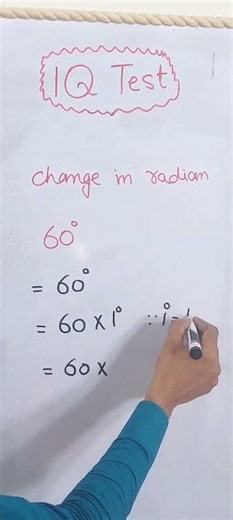 IQ Test
change in radian
60°
= 60°
= 60 × 1° ∵ 1° =
= 60 ×